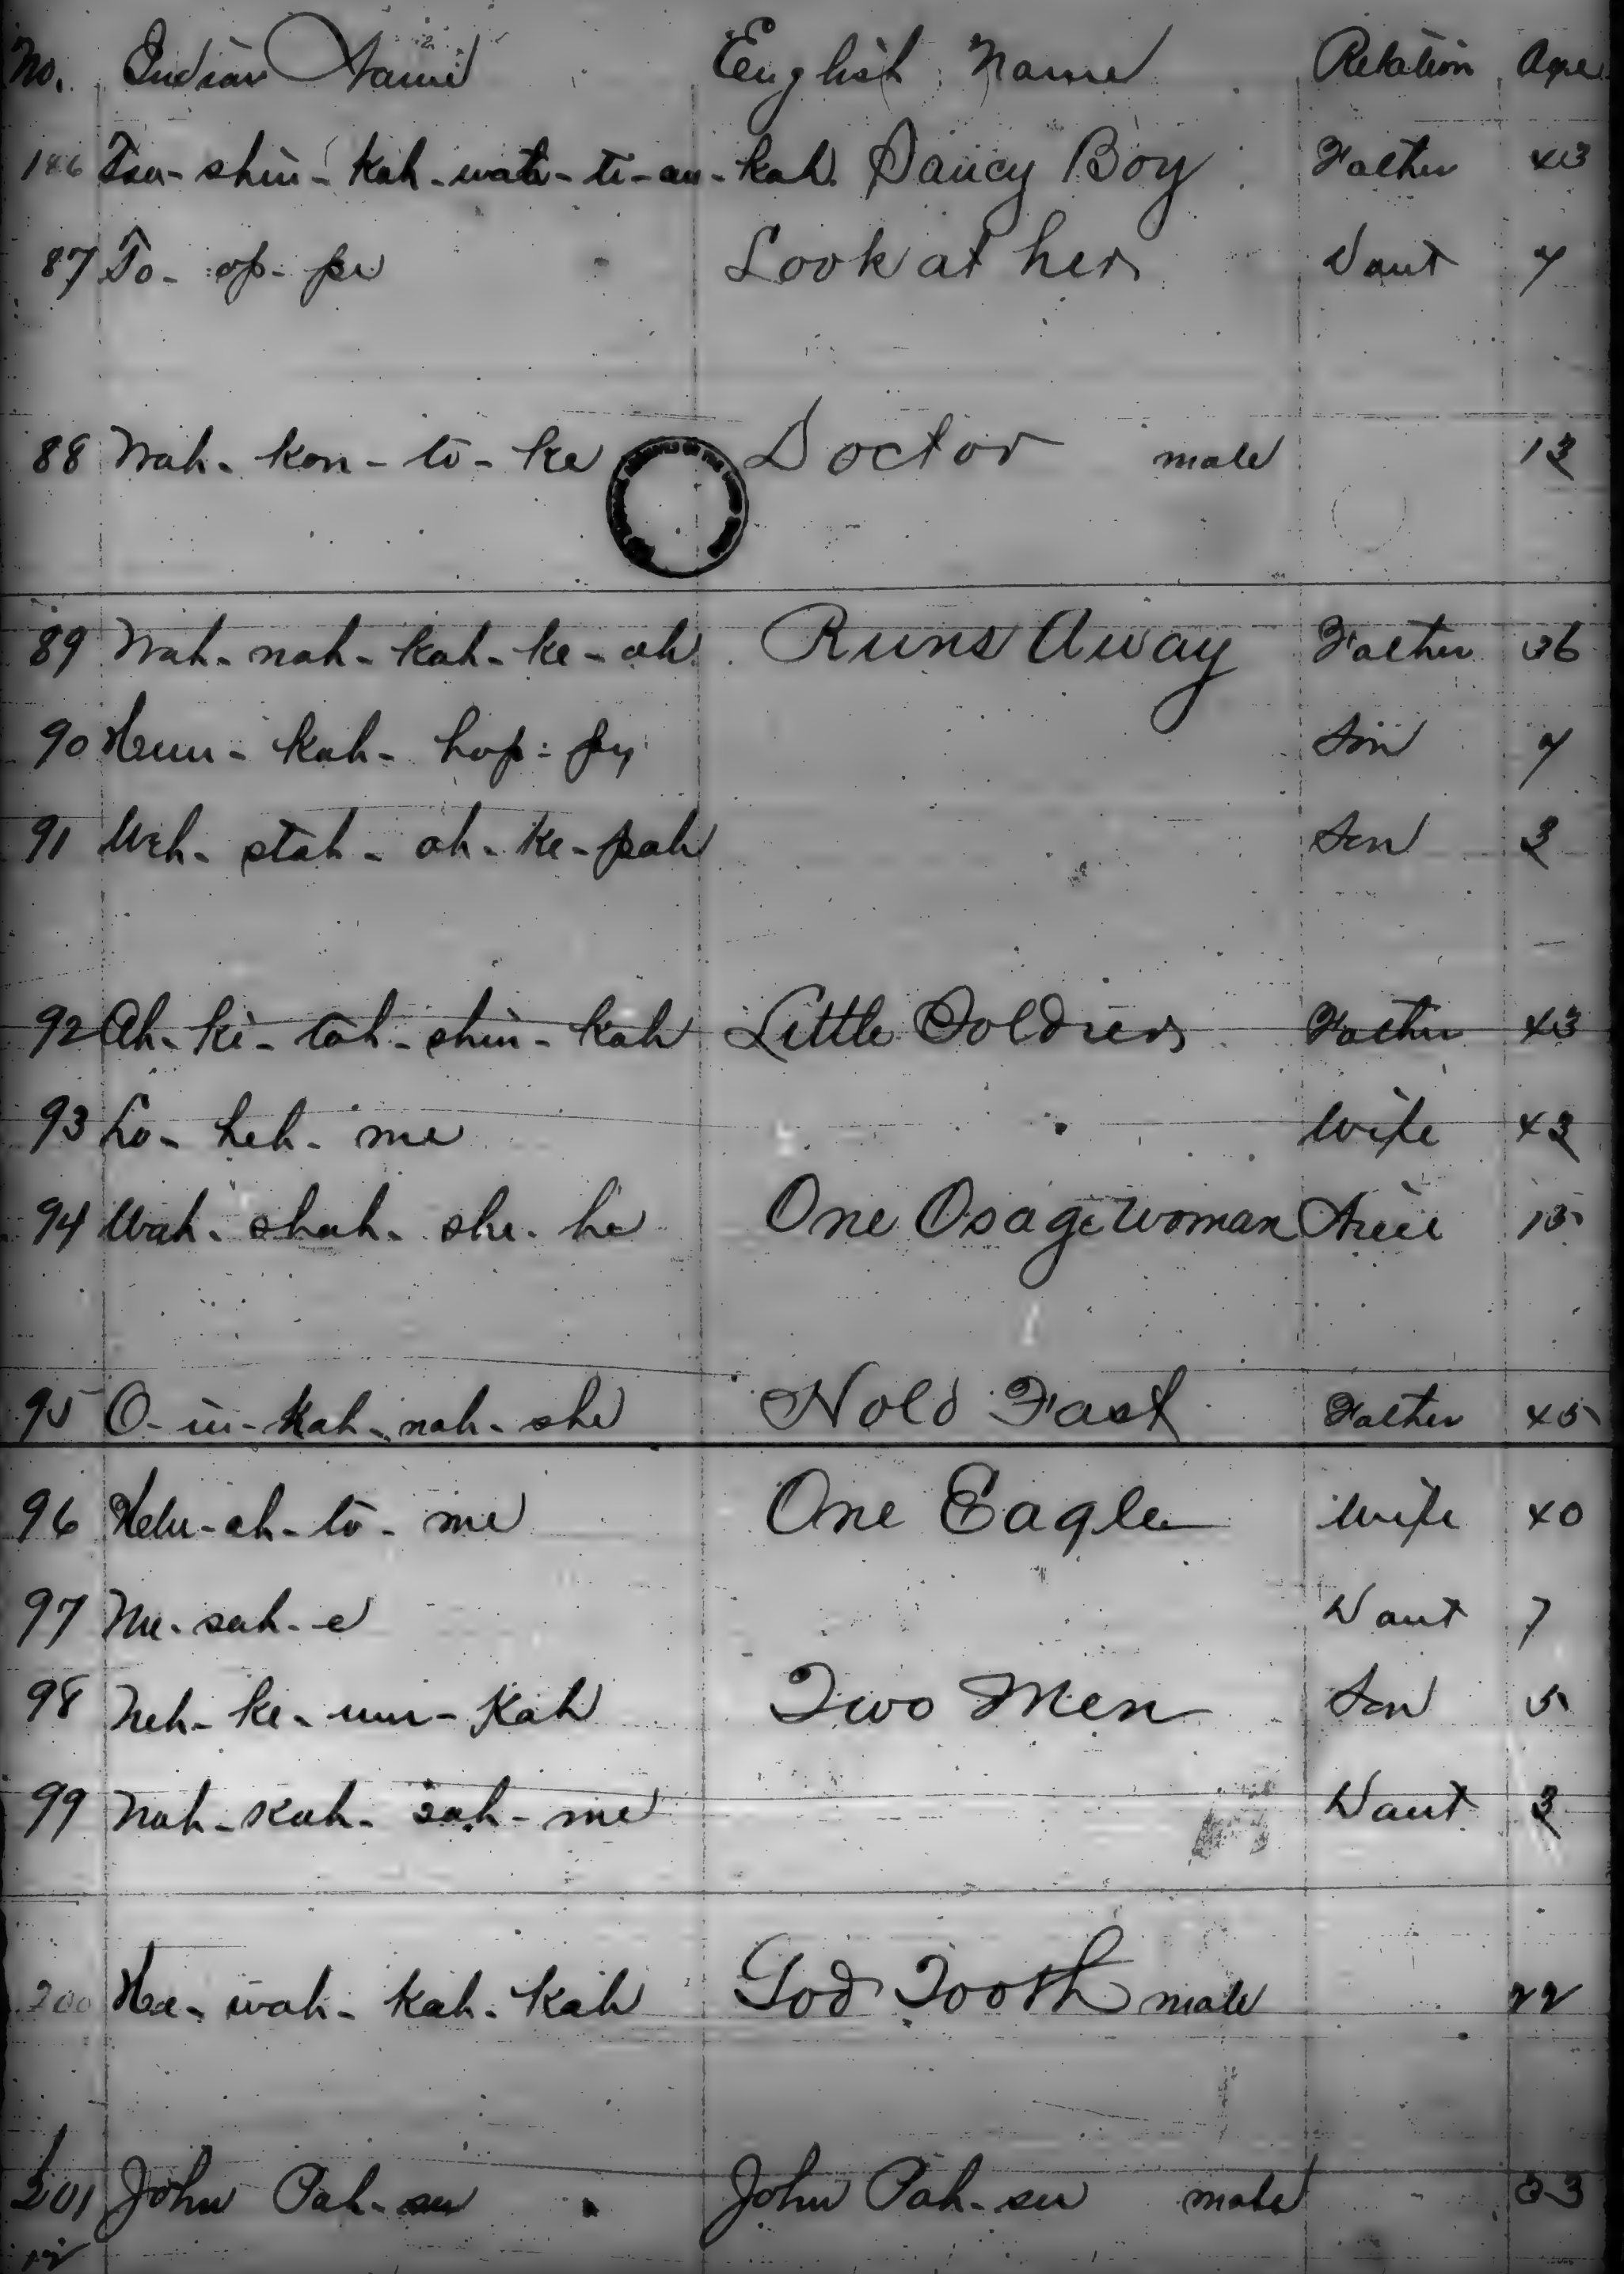 No. Indian Name English Name Relation Age
186 Tsa-shin-kah-wah-ti-an-kah. Saucy Boy Father 43
87 To-op-pe Look at her Daut 7
88 Wah-kon-to-ke Doctor male 13
89 Wah-nah-kah-ke-ah Runs Away Father 36
90 Hun-kah-hop-py Son 7
91 Weh-stah-ah-ke-pah Son 3
92 Ah-ki-tah-shin-kah Little Soldier Father 43
93 Lo-heh-me Wife 43
94 Wah-shah-she-he One Osage Woman 15
95 O-in-kah-nah-she Hold Fast Father 45
96 One Eagle Wife 40
97 Me-sah-e Daut 7
98 Neh-ke-un-kah Two Men Son 5
99 Nah-kah-sah-me Daut 3
200 He-wah-kah-kah God Tooth male 22
201 John Pah-su John Pah-su male 33